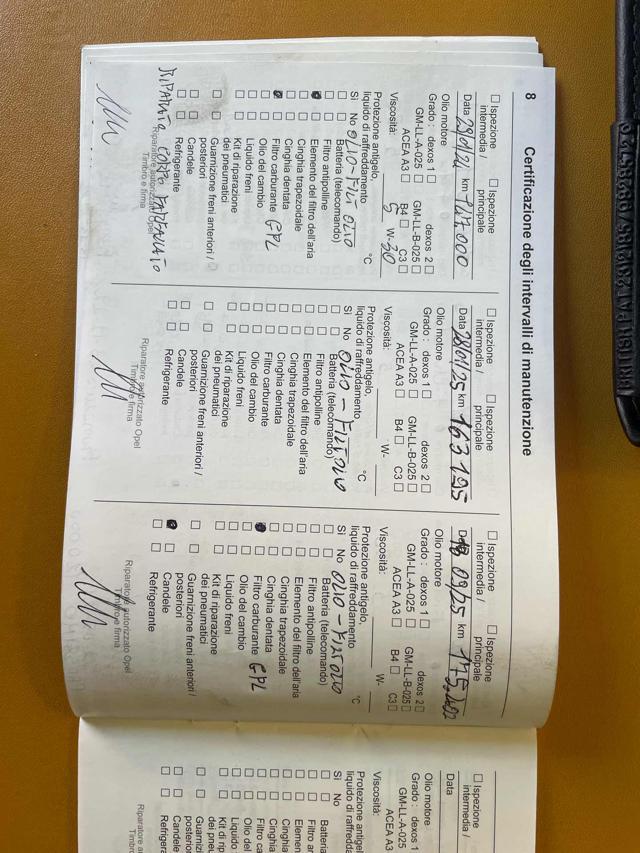 8
Certificazione degli intervalli di manutenzione
Ispezione intermedia /
Ispezione principale
Data 29/01/24 km 147.000
Olio motore
Grado : dexos 1 dexos 2
GM-LL-A-025 GM-LL-B-025
ACEA A3 B4 C3
Viscosità: 5 W-30
Protezione antigelo,
liquido di raffreddamento °C
Sì No OLIO-FILT OLIO
Batteria (telecomando)
Filtro antipolline
Elemento del filtro dell'aria
Cinghia trapezoidale
Cinghia dentata
Filtro carburante GPL
Olio del cambio
Liquido freni
Kit di riparazione
dei pneumatici
Guarnizione freni anteriori /
posteriori
Candele
Refrigerante
Riparatore autorizzato Opel
Timbro e firma
Ispezione intermedia /
Ispezione principale
Data /01/25 km 163195
Olio motore
Grado : dexos 1 dexos 2
GM-LL-A-025 GM-LL-B-025
ACEA A3 B4 C3
Viscosità: W-
Protezione antigelo,
liquido di raffreddamento °C
Sì No OLIO-FILTOLIO
Batteria (telecomando)
Filtro antipolline
Elemento del filtro dell'aria
Cinghia trapezoidale
Cinghia dentata
Filtro carburante
Olio del cambio
Liquido freni
Kit di riparazione
dei pneumatici
Guarnizione freni anteriori /
posteriori
Candele
Refrigerante
Riparatore autorizzato Opel
Timbro e firma
Ispezione intermedia /
Ispezione principale
09/25 km
Olio motore
Grado : dexos 1 dexos 2
GM-LL-A-025 GM-LL-B-025
ACEA A3 B4 C3
Viscosità: W-
Protezione antigelo,
liquido di raffreddamento °C
Sì No OLIO-FILTOLIO
Batteria (telecomando)
Filtro antipolline
Elemento del filtro dell'aria
Cinghia trapezoidale
Cinghia dentata
Filtro carburante GPL
Olio del cambio
Liquido freni
Kit di riparazione
dei pneumatici
Guarnizione freni anteriori /
posteriori
Candele
Refrigerante
Riparatore autorizzato Opel
Timbro e firma
Ispezione
intermedia /
Data
Olio motore
Grado : dexos 1
GM-LL-A-025
ACEA A3
Viscosità:
Protezione antigelo,
liquido di raffredda
Sì No
Batteria
Filtro a
Elemen
Cinghia
Cinghia
Filtro ca
Olio del
Liquido
Kit di rip
dei pne
Guarniz
posteriori
Candele
Refrigera
Riparatore a
Timbro